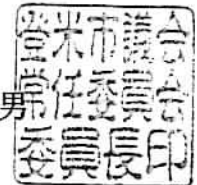 男
登米市議会
常任委員会
委員長印